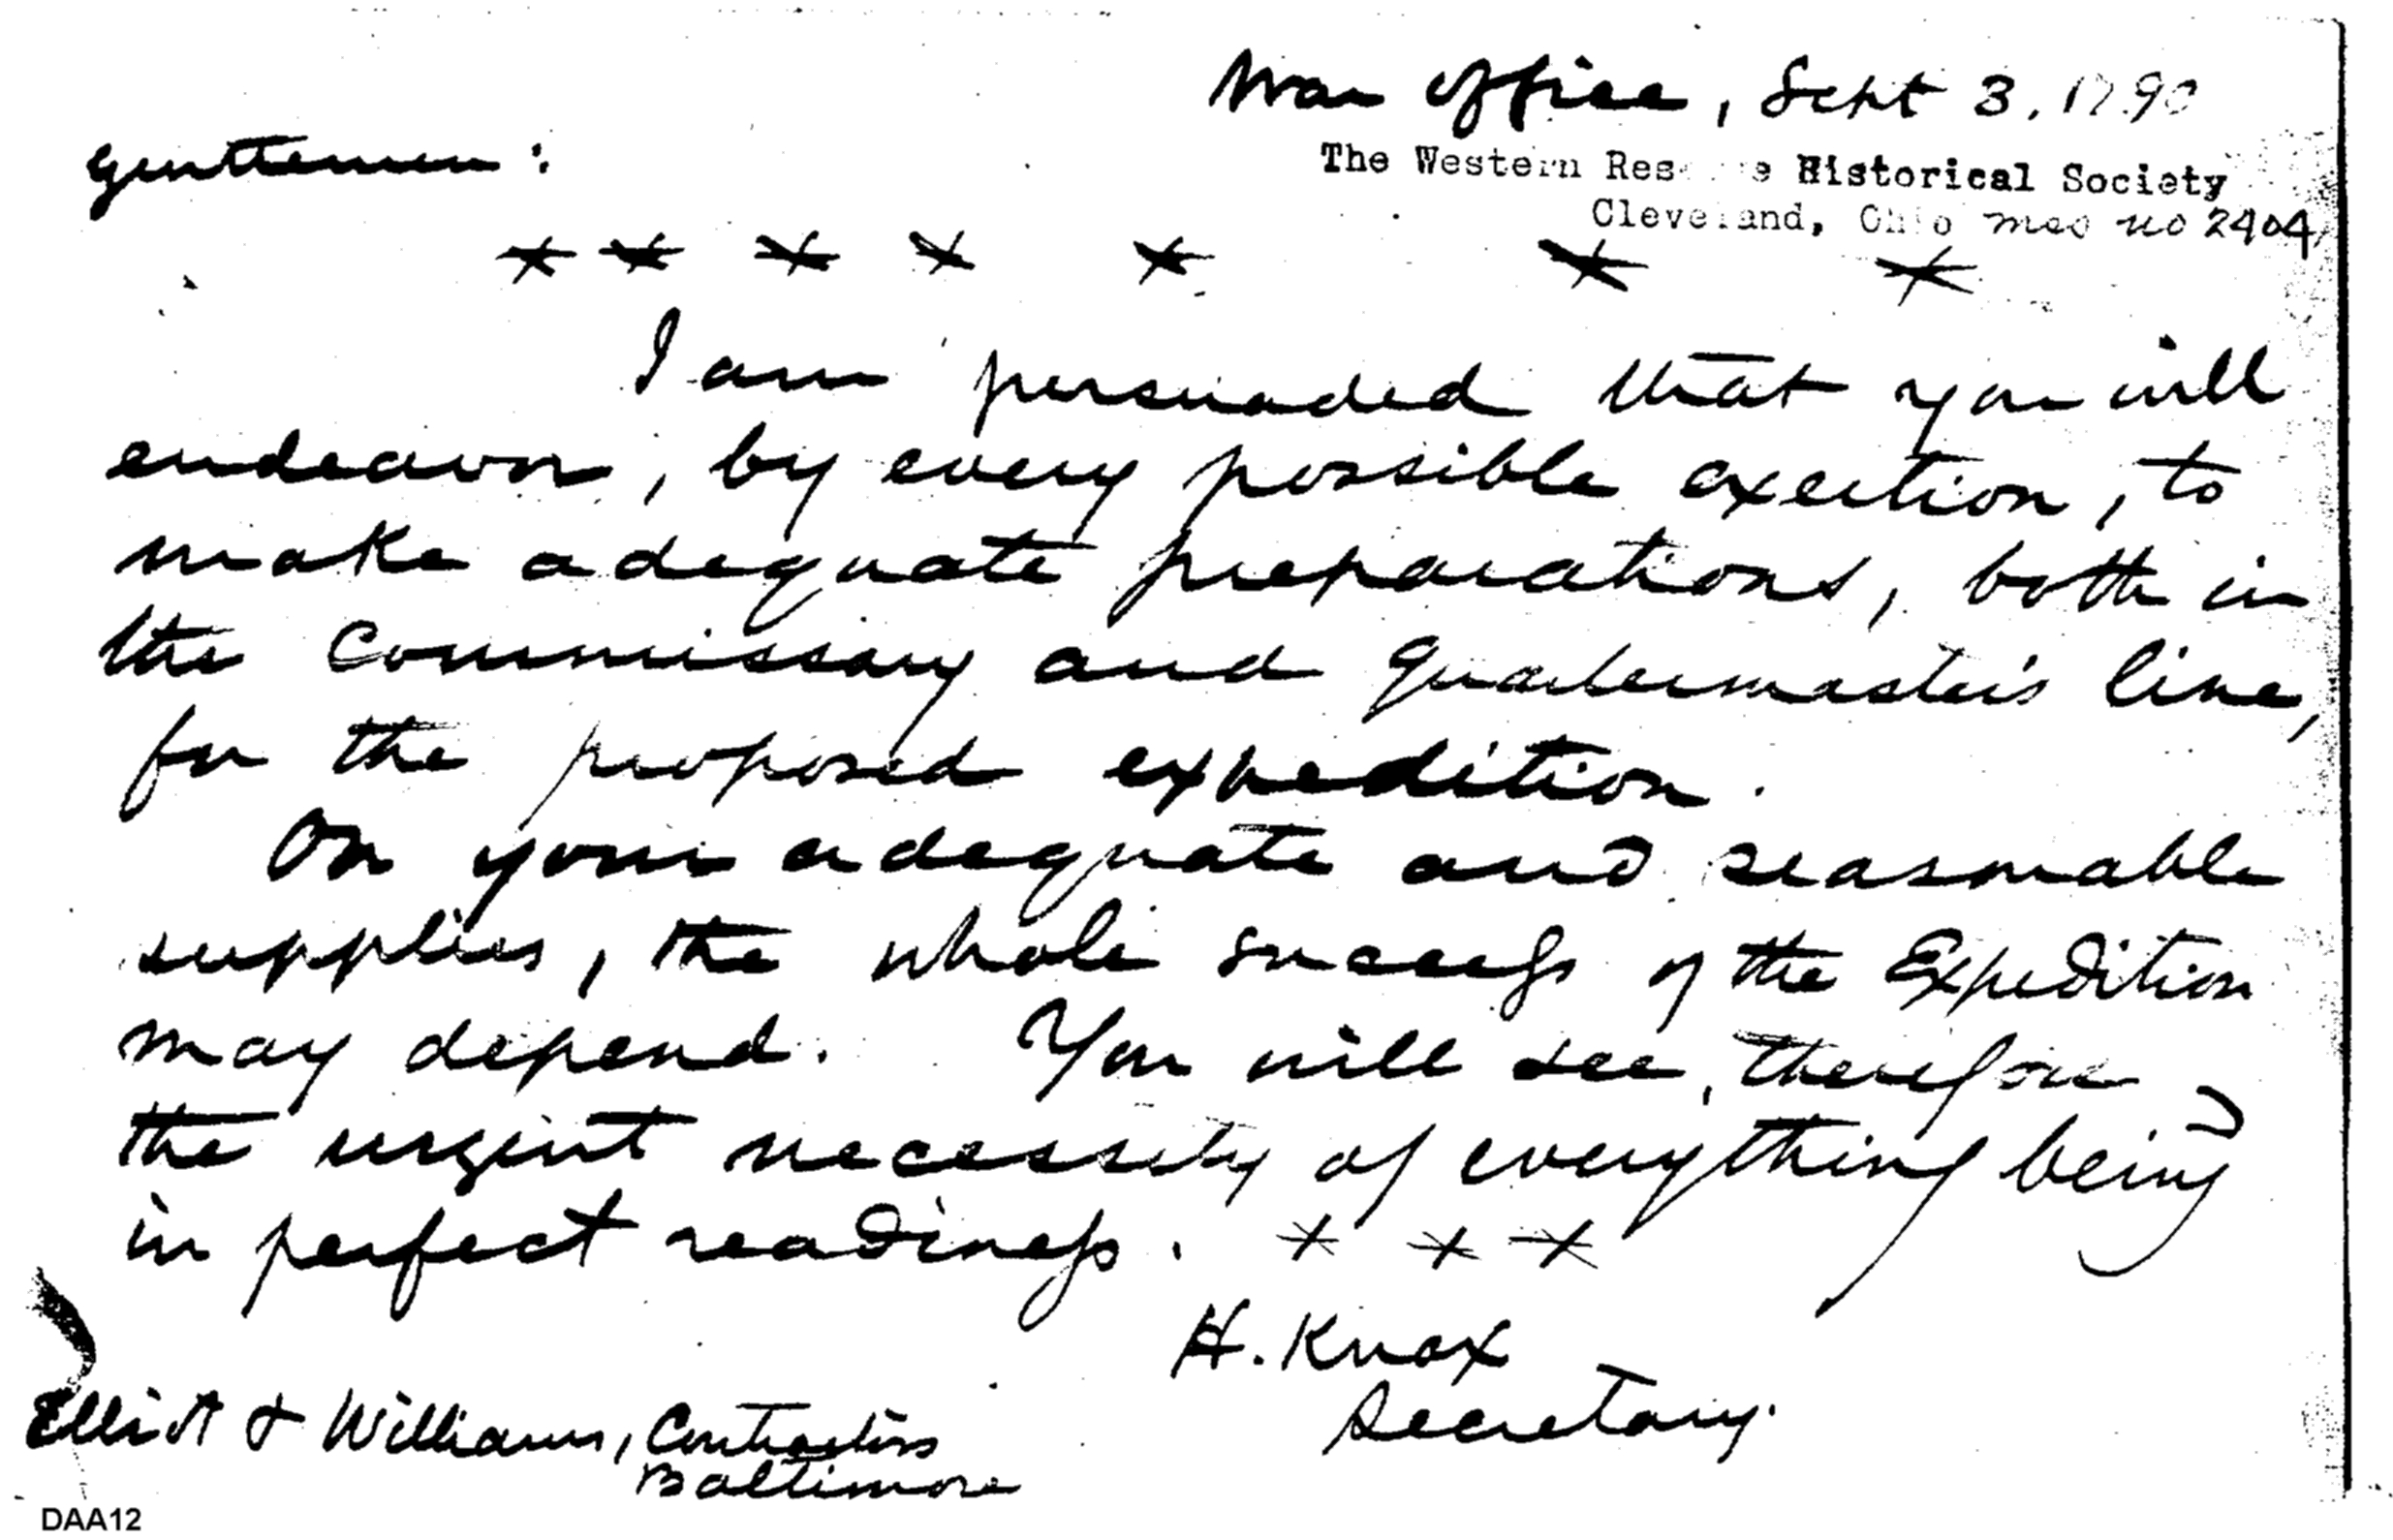 War Office, Sept 3, 1790
Gentlemen:
The Western Reserve Historical Society
Cleveland, Ohio mss no 2404
* * * * * * *
I am persuaded that you will
endeavor, by every possible exertion, to
make adequate preparations, both in
the Commissary and Quartermaster's line,
for the proposed expedition.
On your adequate and seasonable
supplies, the whole success of the Expedition
may depend. You will see, therefore
the urgent necessity of everything being
in perfect readiness. * * *
H. Knox
Secretary.
Elliott & Williams, Contractors
Baltimore
DAA12